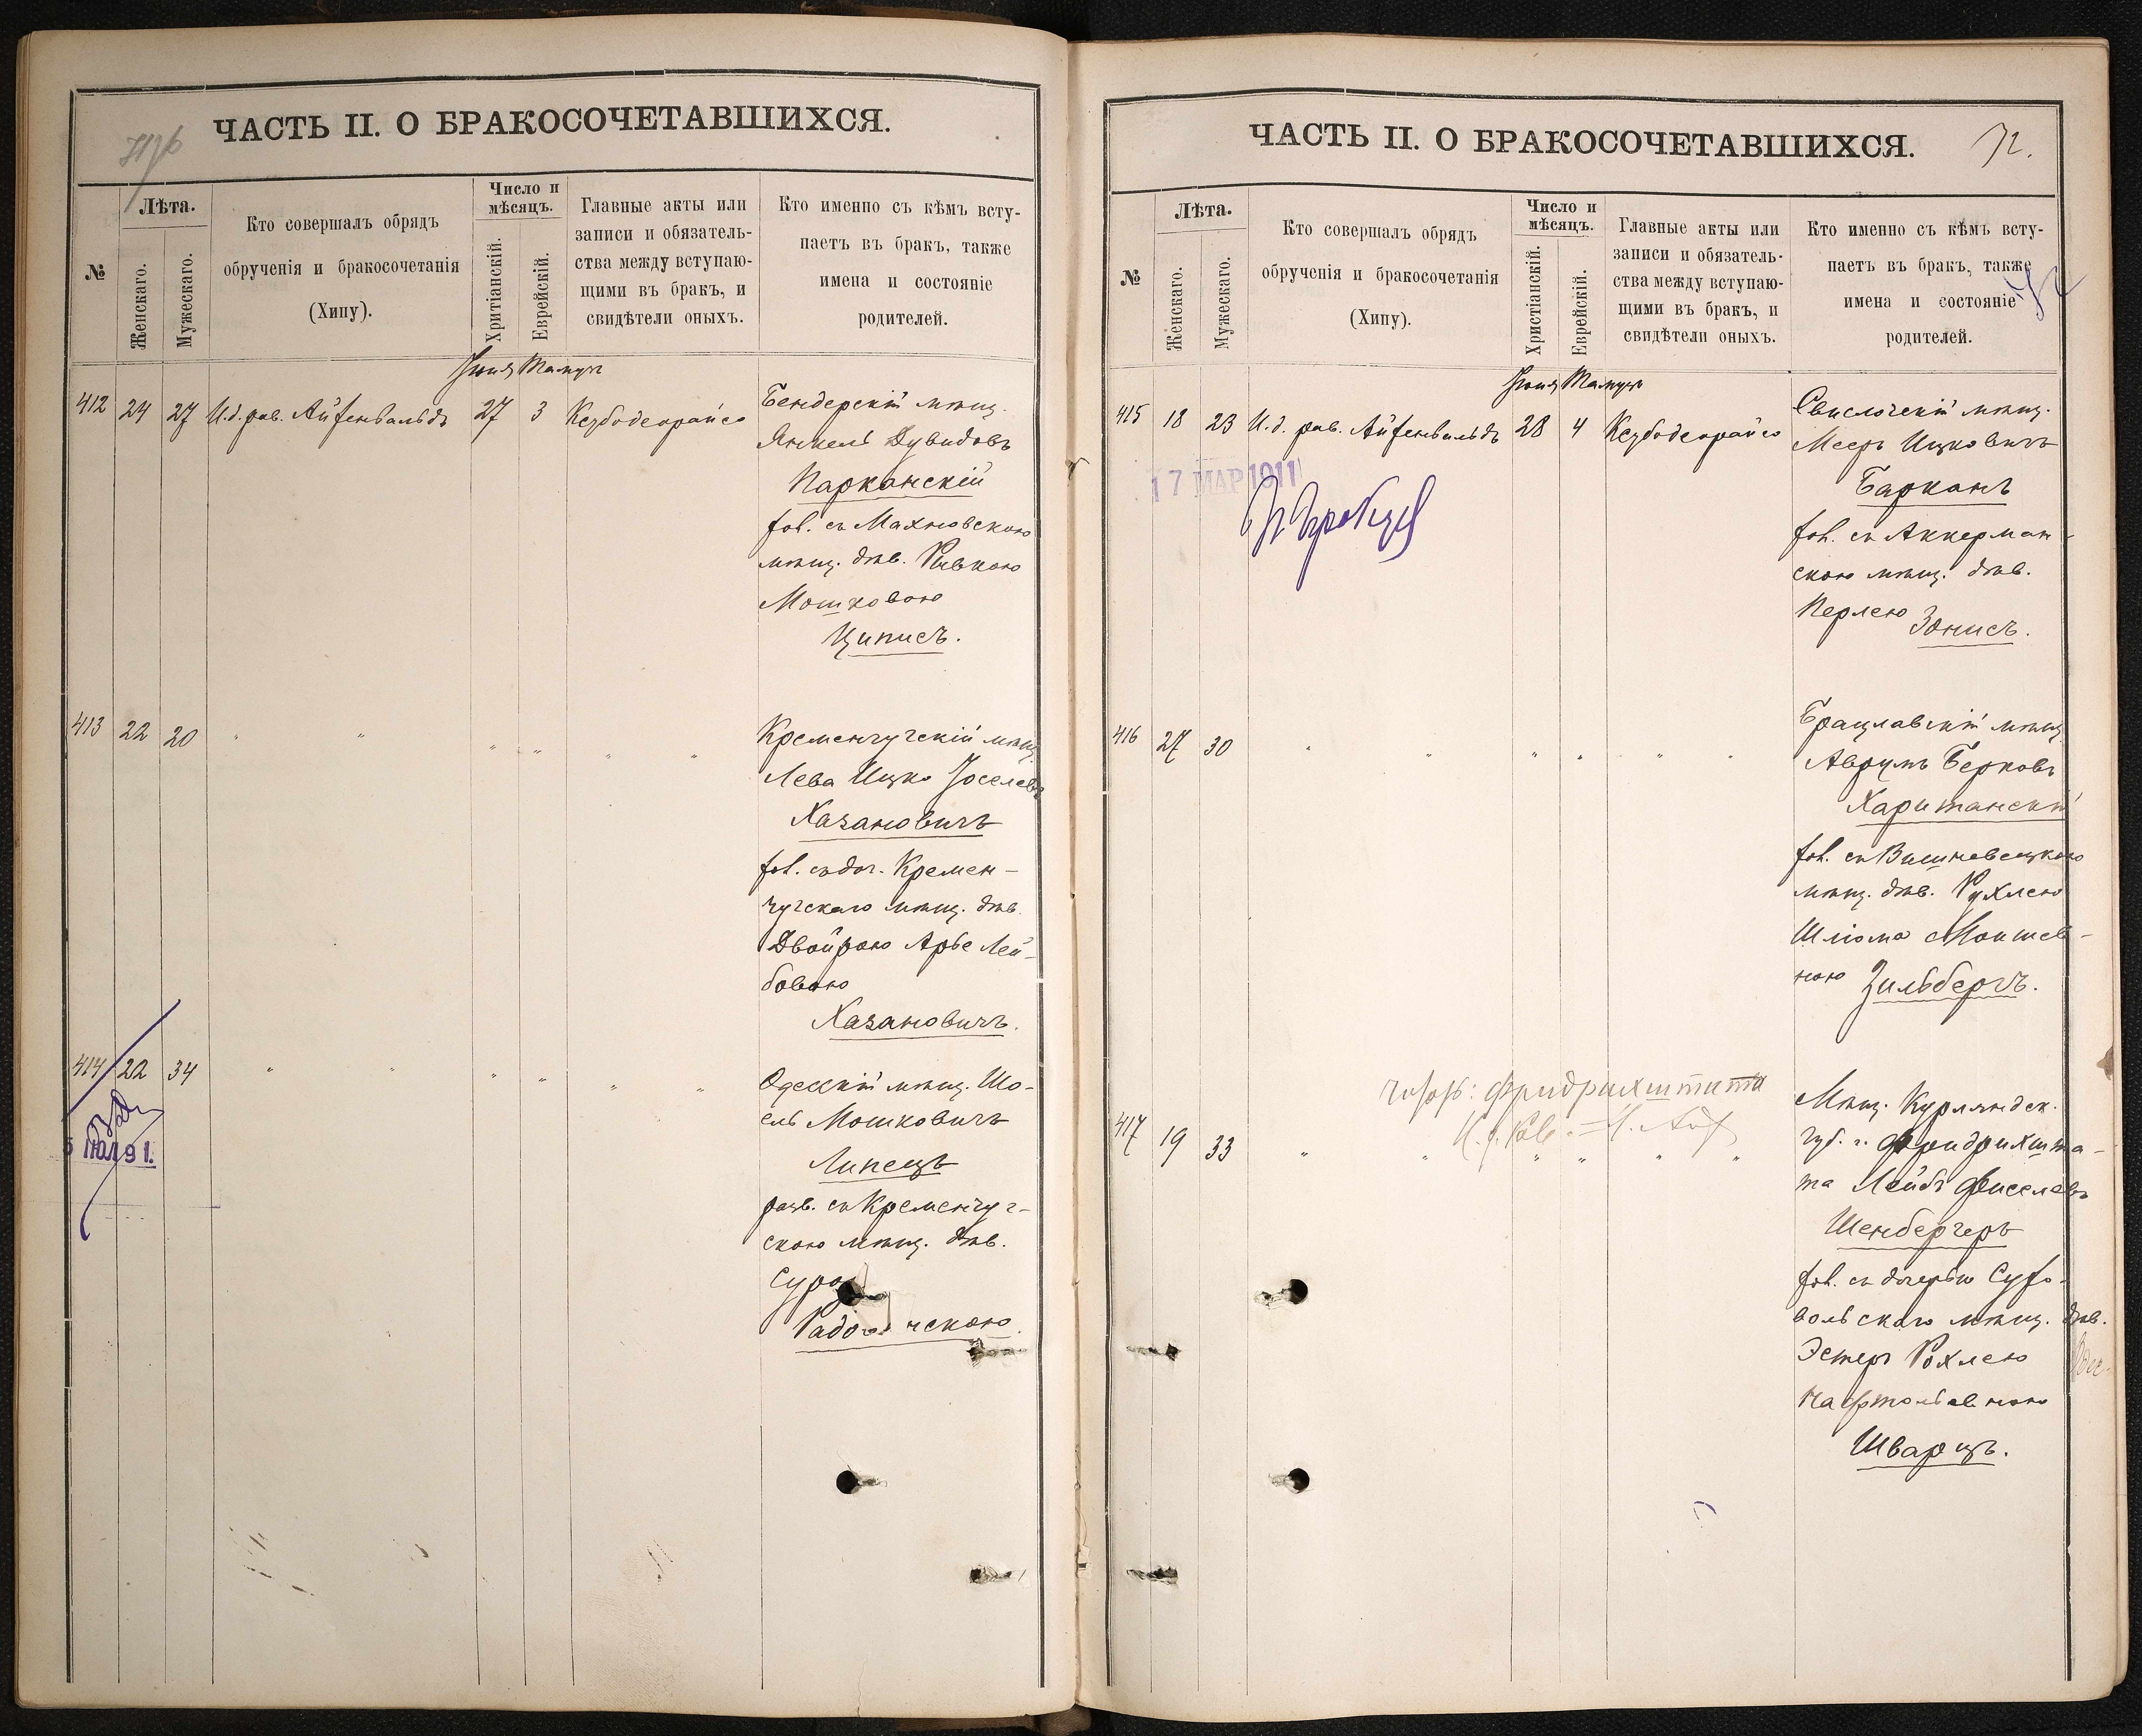 ЧАСТЬ II. О БРАКОСОЧЕТАВШИХСЯ.
№
Лѣта.
Женскаго.
Мужескаго.
Кто совершалъ обрядъ
обрученія и бракосочетанія
(Хипу).
Число и
мѣсяцъ.
Хритіанскій.
Еврейскій.
Главные акты или
записи и обязатель-
ства между вступаю-
щими въ бракъ, и
свидѣтели оныхъ.
Кто именно съ кѣмъ всту-
паетъ въ бракъ, также
имена и состояніе
родителей.
Іюня Тамузъ
412 24 27 И.д. рав. Айзенвальдъ 27 3 Кезбодеорайсо
Бендерскій мѣщ.
Янкель Дувидовъ
Парканскій
хол. съ Махновскою
мѣщ. дѣв. Ривкою
Мошковою
Циписъ.
413 22 20 " " " " " "
Кременчугскій мѣщ.
Лева Ицко Іоселевъ
Хазановичъ
хол. съ доч. Кремен-
чугскаго мѣщ. дѣв.
Двойрою Арье Лей-
бовою
Хазановичъ.
414 22 34 " " " " " "
5 ІЮЛ 91.
Одесскій мѣщ. Шо-
ель Мошковичъ
Липецъ
разв. съ Кременчуг-
скою мѣщ. дѣв.
ЧАСТЬ II. О БРАКОСОЧЕТАВШИХСЯ. 72.
№
Лѣта.
Женскаго.
Мужескаго.
Кто совершалъ обрядъ
обрученія и бракосочетанія
(Хипу).
Число и
мѣсяцъ.
Христіанскій.
Еврейскій.
Главные акты или
записи и обязатель-
ства между вступаю-
щими въ бракъ, и
свидѣтели оныхъ.
Кто именно съ кѣмъ всту-
паетъ въ бракъ, также
имена и состояніе
родителей.
Іюня Тамузъ
415 18 23 И.д. рав. Айзенвальдъ 28 4 Кезбодеорайсо
17 МАР 1911
Свислочскій мѣщ.
Мееръ Ицковичъ
Барканъ
хол. съ Аккерман-
скою мѣщ. дѣв.
Перлею Зонисъ.
416 27 30 " " " " " "
Брацлавскій мѣщ.
Аврумъ Берковъ
Хаританскій
хол. съ Вишневецкою
мѣщ. дѣв. Рухлею
Шліома Мошиев-
ною Зильбергъ.
417 19 33 " " " " " "
Мѣщ. Курляндск.
губ. г. Фридрихшта-
та Лейбъ Фиселевъ
Шенбергеръ
хол. съ дочерью Сухо-
вольскаго мѣщ. дѣв.
Эстеръ Рохлею
Нафтольевною
Шварцъ.